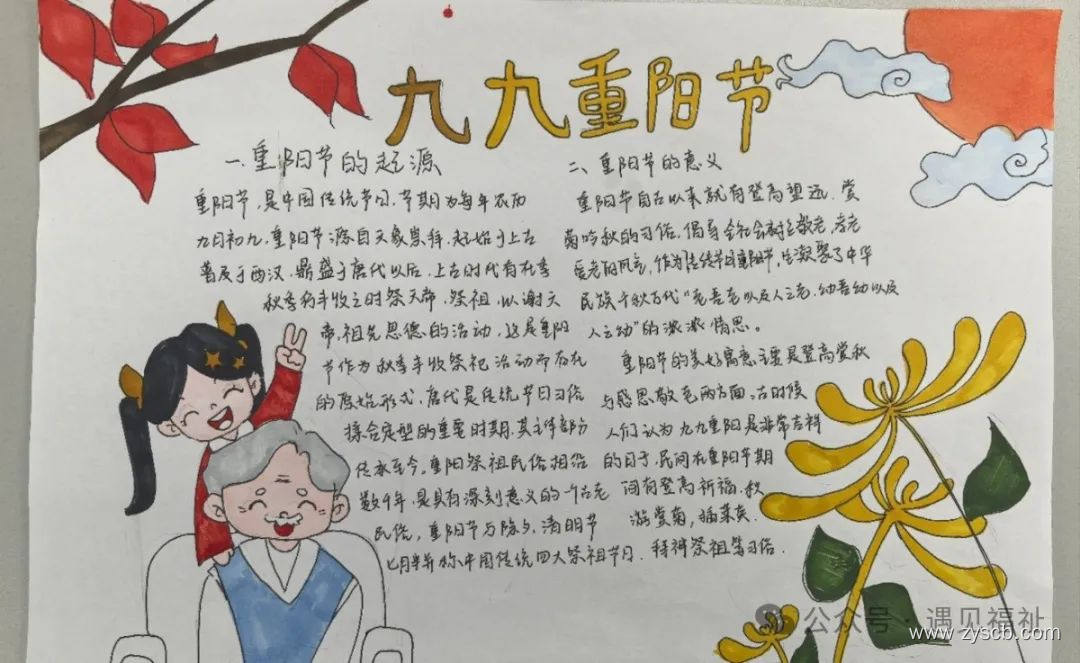 九九重阳节
一、重阳节的起源
重阳节,是中国传统节日,节期为每年农历
九月初九,重阳节源自天象崇拜,起始于上古
普及于西汉,鼎盛于唐代以后,上古时代有在季
秋季的丰收之时祭天帝、祭祖,以谢天
帝、祖先恩德的活动,这是重阳
节作为秋季丰收祭祀活动而存在
的原始形式,唐代是传统节日习俗
揉合定型的重要时期,其主体部分
传承至今。重阳祭祖民俗相沿
数千年,是具有深刻意义的一个古老
民俗,重阳节与除夕、清明节
七月半并称中国传统四大祭祖节日.
二、重阳节的意义
重阳节自古以来就有登高望远、赏
菊吟秋的习俗,倡导全社会树立敬老、孝老
爱老的风气,作为传统节日重阳节,生凝聚了中华
民族千秋万代“老吾老以及人之老,幼吾幼以及
人之幼”的浓浓情思。
重阳节的美好寓意主要是登高赏秋
与感恩敬老两方面。古时候
人们认为九九重阳是非常吉祥
的日子,民间在重阳节期
间有登高祈福、秋
游赏菊,插茱萸、
拜神祭祖等习俗.
公众号·遇见福祉
www.zyscb.com